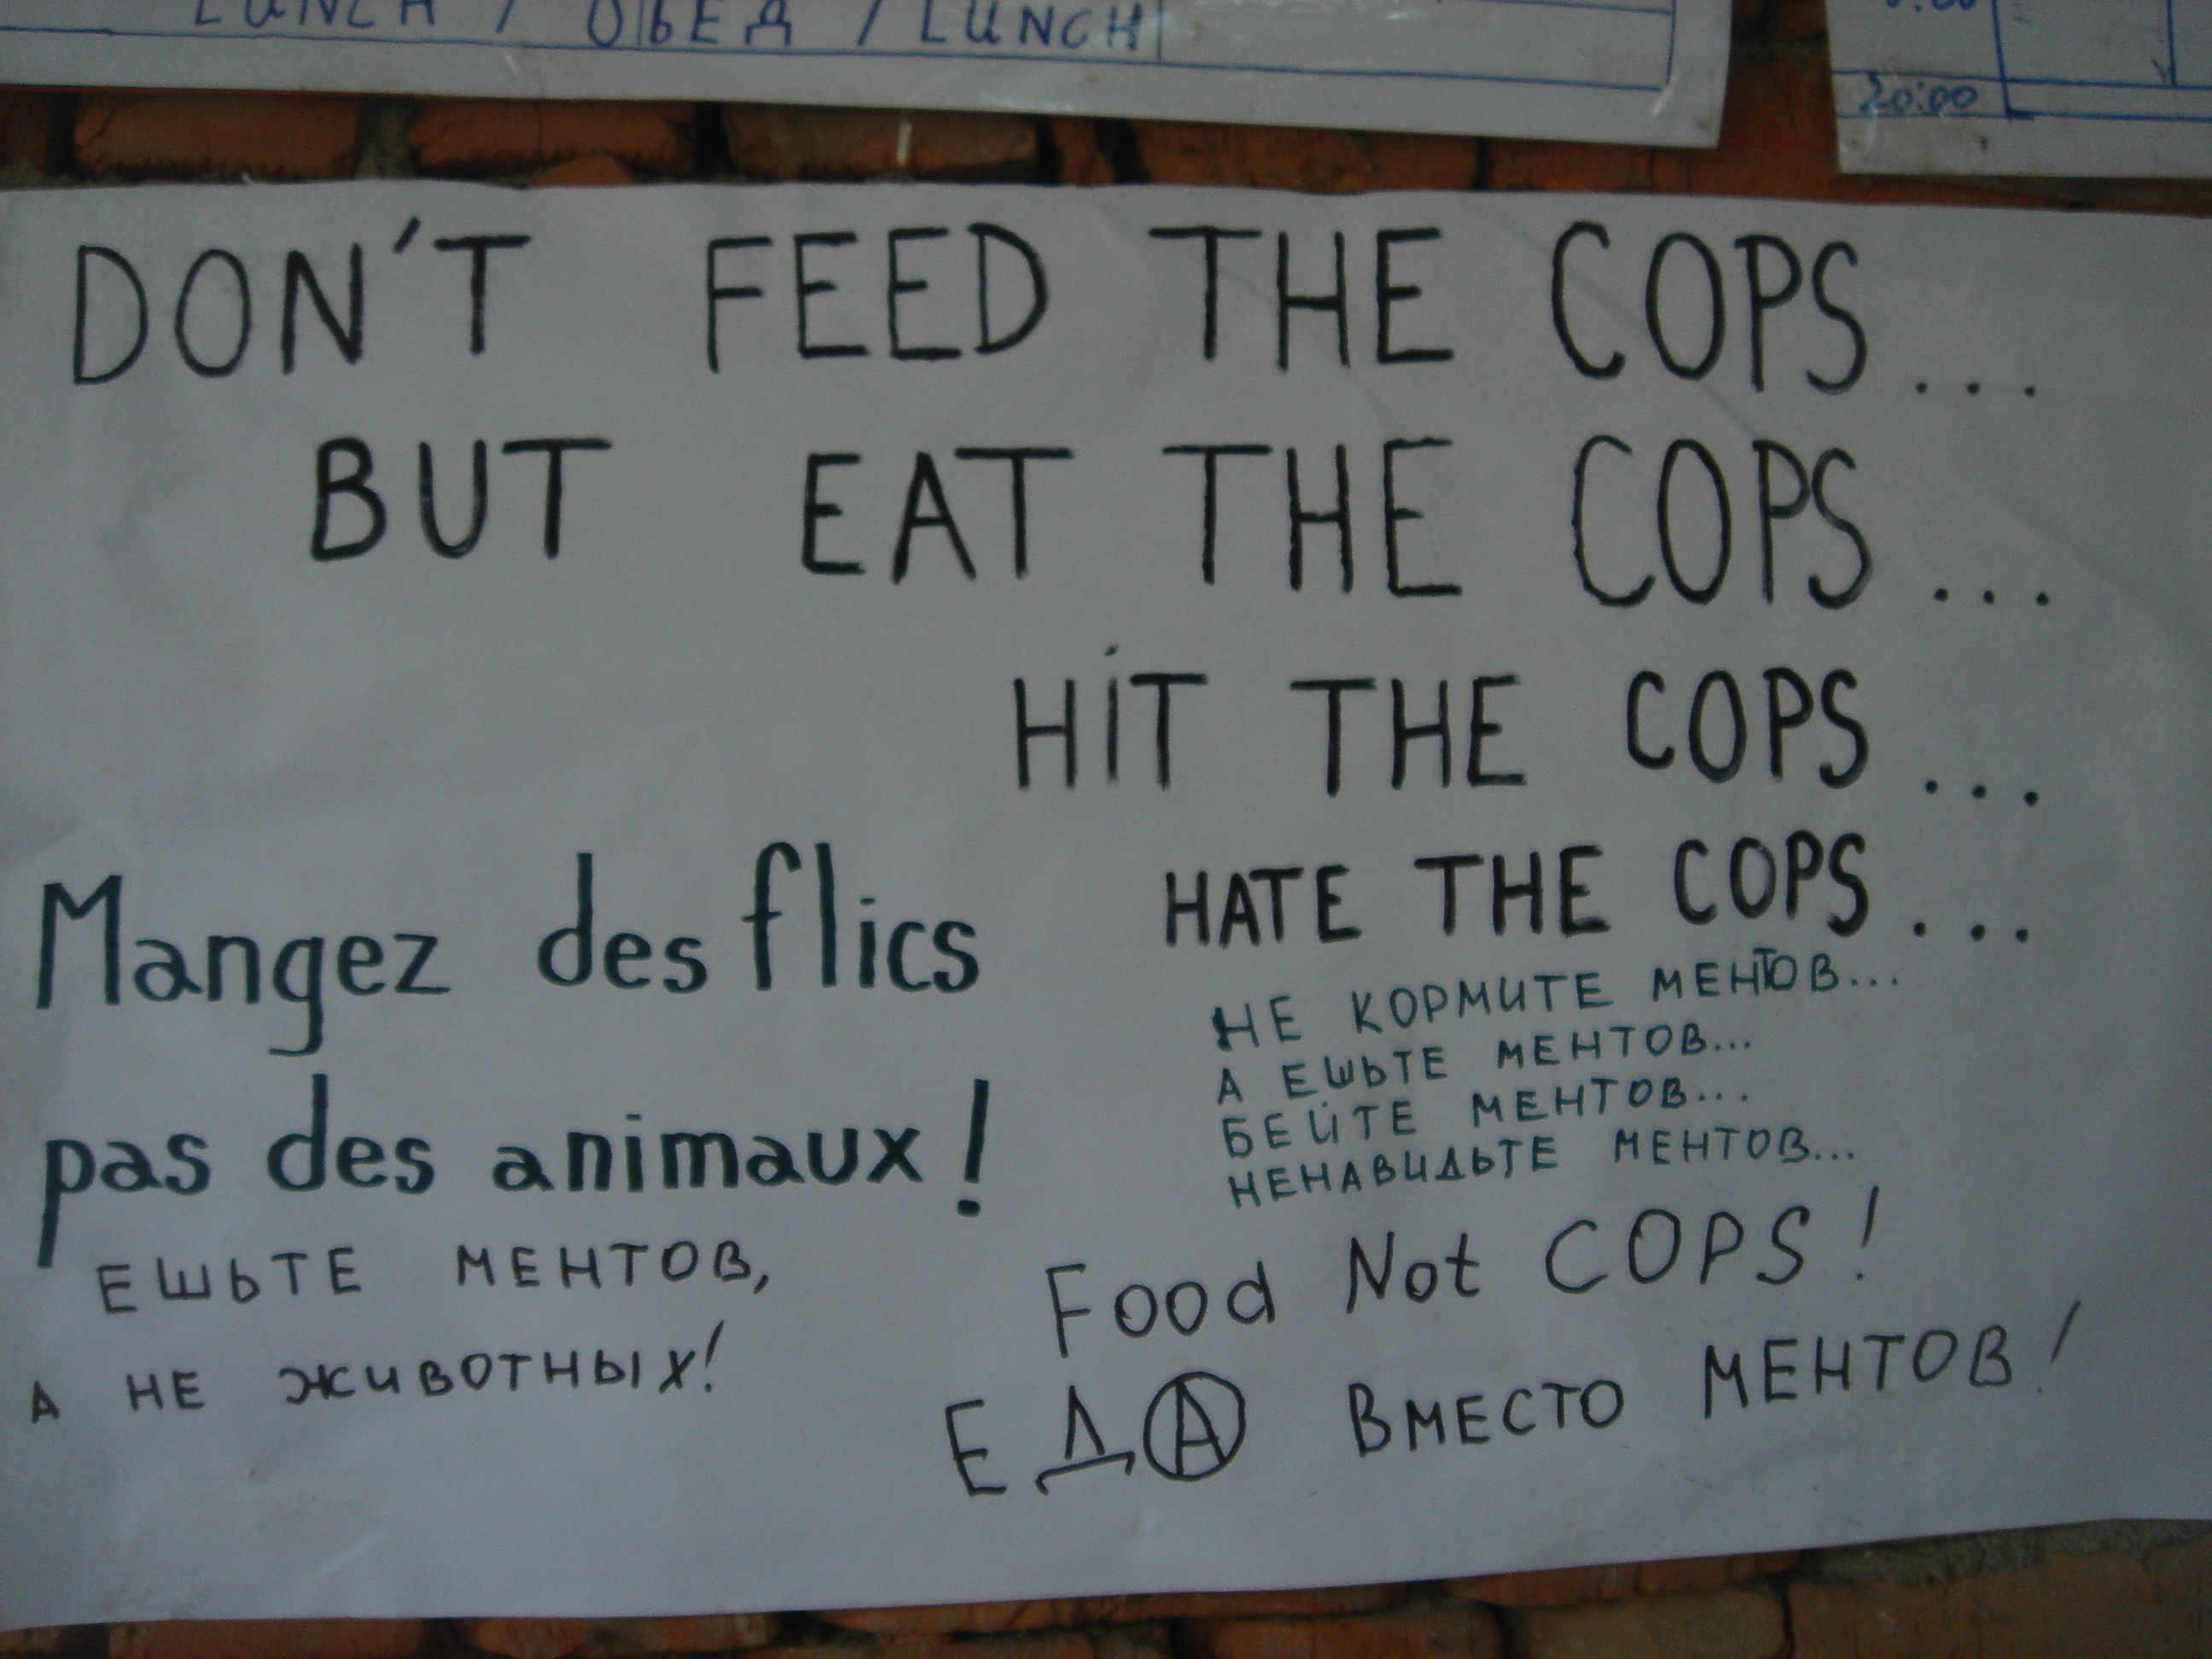 LUNCH / ОБЕД / LUNCH
20:00
DON'T FEED THE COPS...
BUT EAT THE COPS...
HiT THE COPS...
HATE THE COPS...
Mangez des flics
pas des animaux!
ЕШЬТЕ МЕНТОВ,
А НЕ ЖИВОТНЫХ!
НЕ КОРМИТЕ МЕНТОВ...
А ЕШЬТЕ МЕНТОВ...
БЕЙТЕ МЕНТОВ...
НЕНАВИДЬТЕ МЕНТОВ...
Food Not COPS!
ЕДА ВМЕСТО МЕНТОВ!